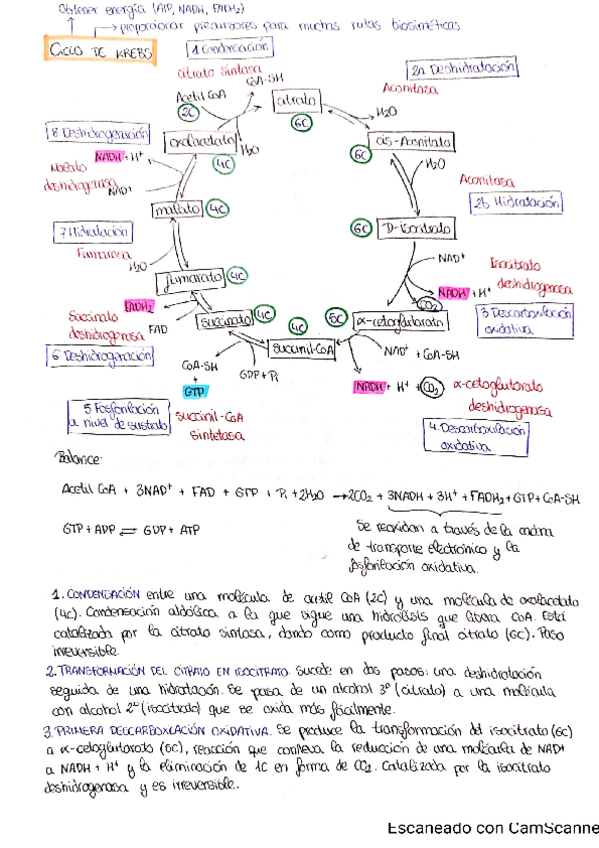 Obtener energía (ATP, NADH, FADH2)
→ proporcionar precursores para muchas rutas biosintéticas
CICLO DE KREBS
1 Condensación
citrato sintasa
CoA-SH
Acetil CoA
2C
citrato
6C
2a Deshidratación
Aconitasa
H2O
cis-Aconitato
6C
H2O
Aconitasa
2b Hidratación
D-isocitrato
6C
NAD+
Isocitrato
deshidrogenasa
NADH + H+
CO2
3 Descarboxilación
oxidativa
α-cetoglutarato
5C
NAD+ + CoA-SH
NADH + H+ + CO2
α-cetoglutarato
deshidrogenasa
4. Descarboxilación
oxidativa
succinil-CoA
4C
GDP + Pi
CoA-SH
+
GTP
5 Fosforilación
a nivel de sustrato
succinil-CoA
sintetasa
succinato
4C
FADH2
FAD
Succinato
deshidrogenasa
6 Deshidrogenación
fumarato
4C
7 Hidratación
Fumarasa
H2O
malato
4C
8 Deshidrogenación
NADH + H+
Malato
deshidrogenasa
NAD+
oxalacetato
4C
H2O
Balance:
Acetil CoA + 3NAD+ + FAD + GDP + Pi + 2H2O → 2CO2 + 3NADH + 3H+ + FADH2 + GTP + CoA-SH
GTP + ADP ⇌ GDP + ATP
Se reoxidan a través de la cadena
de transporte electrónico y la
fosforilación oxidativa.
1. CONDENSACIÓN entre una molécula de acetil CoA (2C) y una molécula de oxalacetato
(4C). Condensación aldólica a la que sigue una hidrólisis que libera CoA. Está
catalizada por la citrato sintasa, dando como producto final citrato (6C). Paso
irreversible.
2. TRANSFORMACIÓN DEL CITRATO EN ISOCITRATO. Sucede en dos pasos: una deshidratación
seguida de una hidratación. Se pasa de un alcohol 3º (citrato) a una molécula
con alcohol 2º (isocitrato) que se oxida más fácilmente.
3. PRIMERA DESCARBOXILACIÓN OXIDATIVA. Se produce la transformación del isocitrato (6C)
a α-cetoglutarato (5C), reacción que conlleva la reducción de una molécula de NAD+
a NADH + H+ y la eliminación de 1C en forma de CO2. Catalizada por la isocitrato
deshidrogenasa y es irreversible.
Escaneado con CamScanne